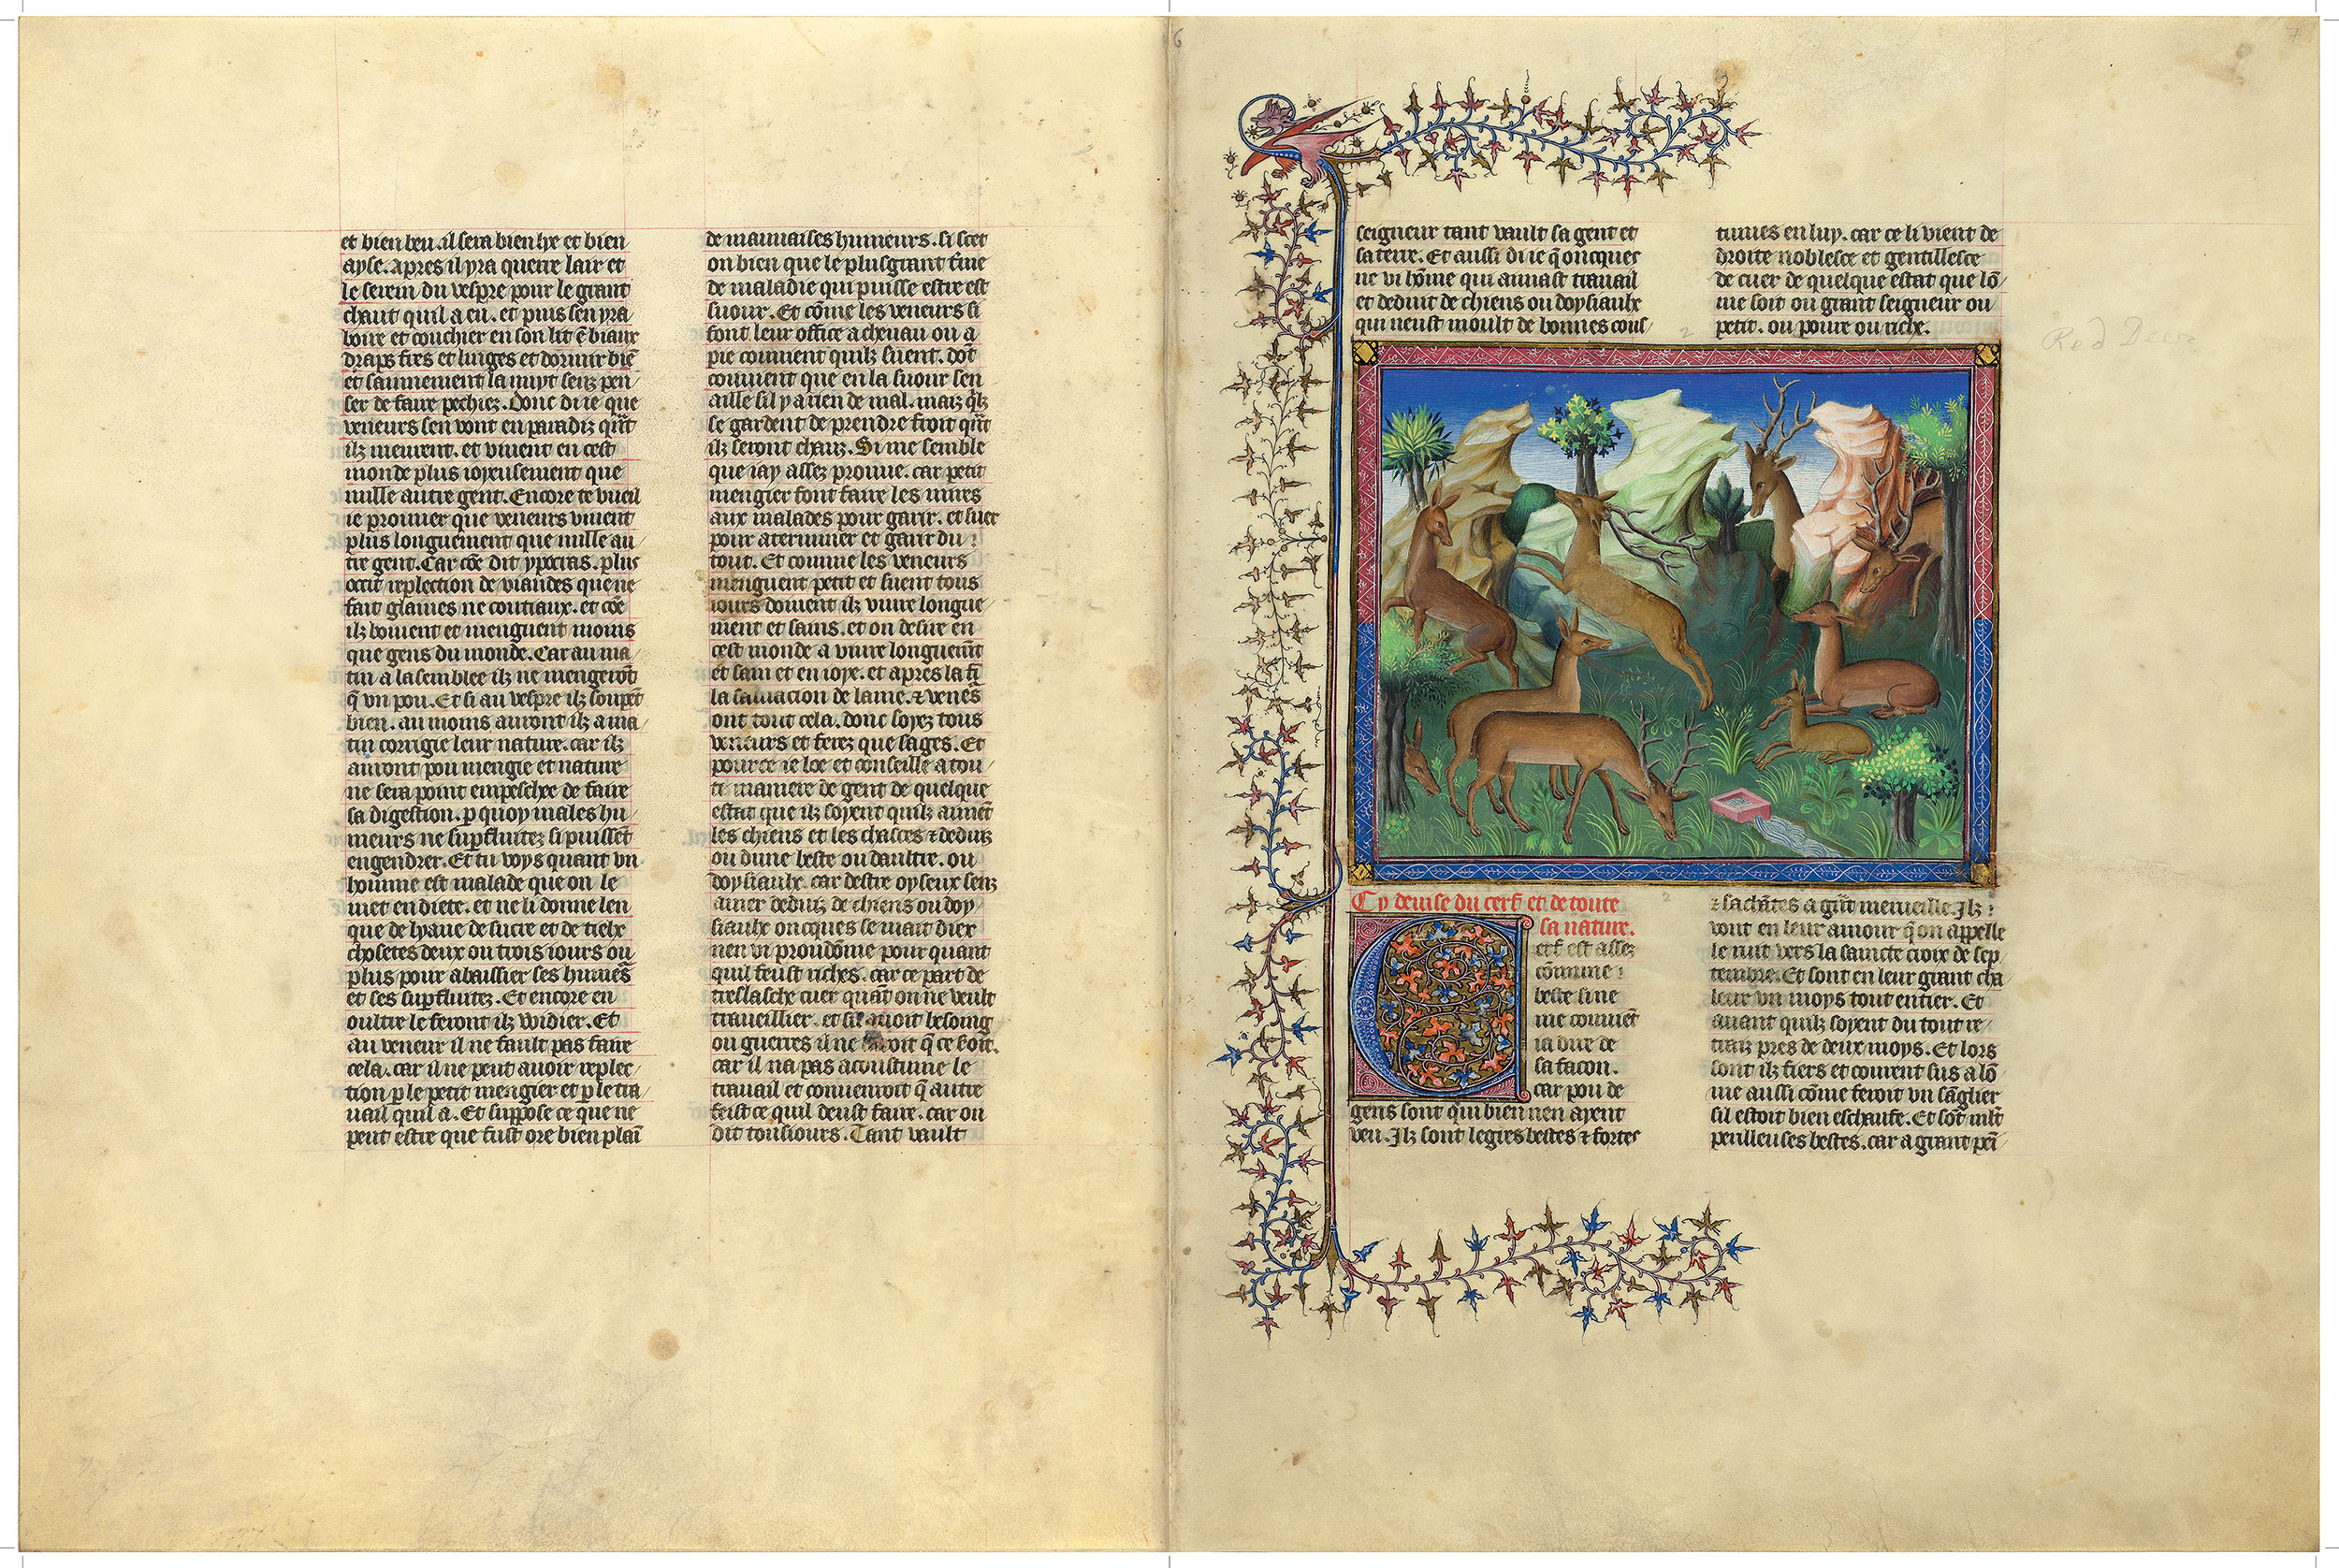 et bien beu. il sera bien lye et bien
ayse. Apres il yra querre lair et
le serein du vespre pour le grant
chaut quil a eu. et puis sen yra
boire et couchier en son lit ē biaux
draps frēs et linges et dormir biē
et sainnement la nuyt senz pen/
ser de faire pechiez. Donc di ie que
veneurs sen vont en paradiz qn̄t
ilz meurent. et vivent en cest
monde plus ioyeusement que
nulle autre gent. Encore te vueil
ie prouver que veneurs vivent
plus longuement que nulle au/
tre gent. Car cōe dit ypocras. plus
occit replection de viandes que ne
fait glaives ne coutiaux. et cōe
ilz boivent et menguent moins
que gens du monde. Car au ma/
tin a lasemblee ilz ne mengerōt
q̄ un pou. Et si au vespre ilz soupēt
bien. au moins auront ilz a ma/
tin corrigie leur nature. car ilz
auront pou mengie et nature
ne sera point empeschee de faire
sa digestion. p quoy males hu/
meurs ne supfluitez si puissēt
engendrer. Et tu voys quant un
homme est malade que on le
met en diete. et ne li donne len
que de lyaue de sucre et de tielx
chosetes deux ou trois iours ou
plus pour abaissier ses humes̄
et ses supfluitez. Et encore en
oultre le feront ilz widier. Et
au veneur il ne fault pas faire
cela. car il ne peut avoir replec/
tion p le petit mengier et p le tra/
vail quil a. Et suppose ce que ne
peut estre que fust ore bien plaī
de mauvaises humeurs. si scet
on bien que le plusgrant t̄me
de maladie qui puisse estre est
suour. Et cōme les veneurs si
font leur office a cheuau ou a
pie couuient quilz suent. dōt
couuient que en la suour sen
aille sil y a rien de mal. maiz q̄lz
se gardent de prendre froit qn̄t
ilz seront chauz. Si me semble
que iay assez prouue. car petit
mengier font faire les mires
aux malades pour garir. et suer
pour aterminer et garir du
tout. Et comme les veneurs
menguent petit et suent tous
iours doivent ilz vivre longue/
ment et sains. et on desire en
cest monde a vivre longuemt̄
et sain et en ioye. et apres la fī
la sauuacion de lame. & venes̄
ont tout cela. donc soyez tous
veneurs et ferez que sages. Et
pour ce ie loe et conseille a tou/
te maniere de gent de quelque
estat que ilz soyent quilz aimēt
les chiens et les chasces & deduiz
ou dune beste ou daultre. ou
doysiaulx. car destre oyseux senz
amer deduiz de chiens ou doy
siaulx oncques se mait diex
nen vi proudōme pour quant
quil feust riches. car ce part de
treslasche cuer quāt on ne veult
traueillier. et sil auoit besoing
ou guerres il ne q̄ ce soit.
car il na pas acoustume le
travail et convenroit q̄ autre
feist ce quil deust faire. car on
dit tousiours. Tant vault
6
seigneur tant vault sa gent et
sa terre. Et aussi di ie q̄ oncques
ne vi hōme qui amast travail
et deduit de chiens ou doysiaulx
qui neust moult de bonnes cous/
tumes en luy. car ce li vient de
droite noblesce et gentillesce
de cuer de quelque estat que lō/
me soit ou grant seigneur ou
petit. ou poure ou riche.
Red Deer
Cy devise du cerf et de toute
sa nature.
Cerf est assez
cōmune
beste si ne
me couuiēt
ia dire de
sa facon.
car pou de
gens sont qui bien nen ayent
veu. Ilz sont legires bestes & fortes
& sachātes a gn̄t merueille. Ilz
vont en leur amour q̄ on appelle
le ruit vers la saincte croix de sep/
tembre. Et sont en leur grant cha
leur un moys tout entier. Et
auant quilz soyent du tout re/
traiz pres de deux moys. Et lors
sont ilz fiers et courent sus a lō
me aussi cōme feroit un sāglier
sil estoit bien eschaufe. Et sōt mlt̄
perilleuses bestes. car a grant pei/